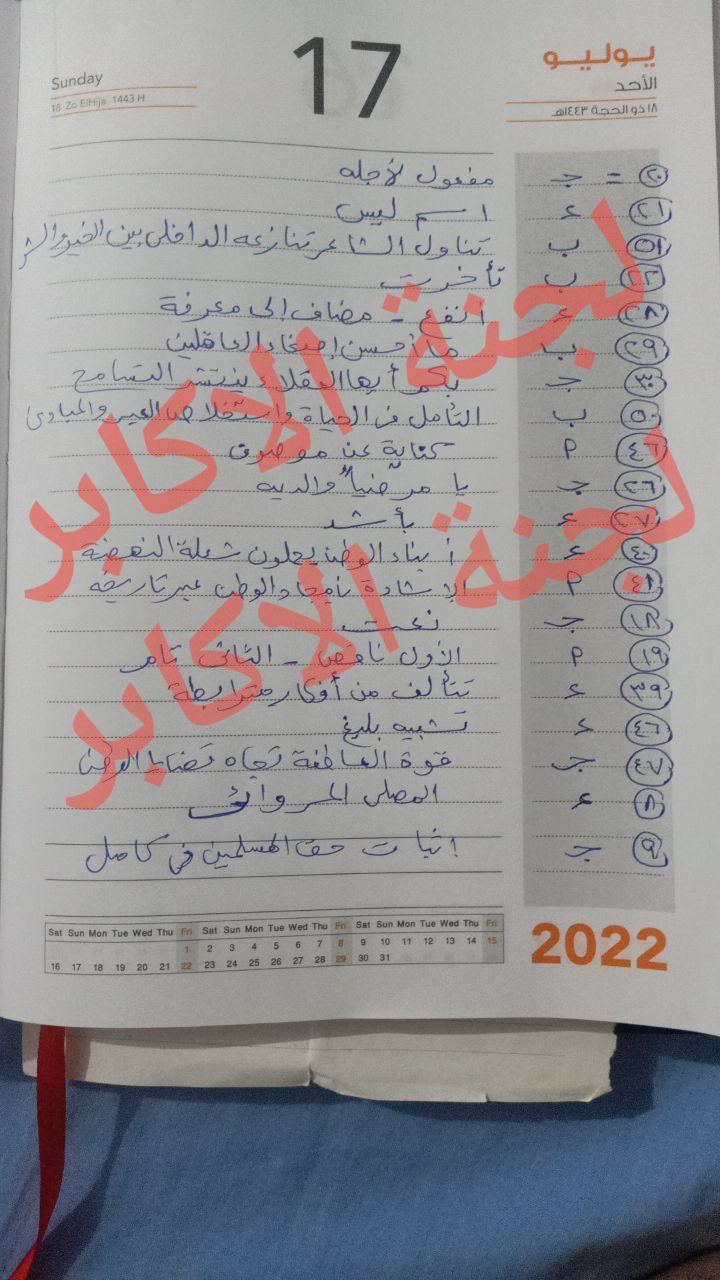 Sunday
18 Zo ElHija 1443 H
17
يوليو
الأحد
١٨ ذو الحجة ١٤٤٣هـ
٢٠ = جـ مفعول لأجله
٢١ ء اسم ليس
٥١ ب تناول الشاعر تنازعه الداخلى بين الخير والشر
٢٢ ب تأخرت
٢٨ ء أنفع - مضاف إلى معرفة
٢٩ ب ما أحسن إصغاء العاقلين
٣٠ جـ بكم أيها العقلاء ينتشر التسامح
٥٠ ب التأمل فى الحياة واستخلاص العبر والمبادئ
٤٦ أ كناية عن موصوف
٢٦ جـ يا مرضياً والديه
٢٧ ء بأشد
٤٠ ء أبناء الوطن يحملون شعلة النهضة
٤١ أ الإشادة بأمجاد الوطن عبر تاريخه
١٨ جـ نعت
١٩ أ الأول ناقص - الثانى تام
٣٩ ء تتألف من أفكار مترابطة
٤٦ ء تشبيه بليغ
٤٧ جـ قوة العاطفة تجاه قضايا الوطن
٨ ء المصلى المروانى
٩ جـ إثبات حق المسلمين فى كامل
لجنة الاكابر
لجنة الاكابر
Sat Sun Mon Tue Wed Thu Fri Sat Sun Mon Tue Wed Thu Fri Sat Sun Mon Tue Wed Thu Fri
1 2 3 4 5 6 7 8 9 10 11 12 13 14 15
16 17 18 19 20 21 22 23 24 25 26 27 28 29 30 31
2022